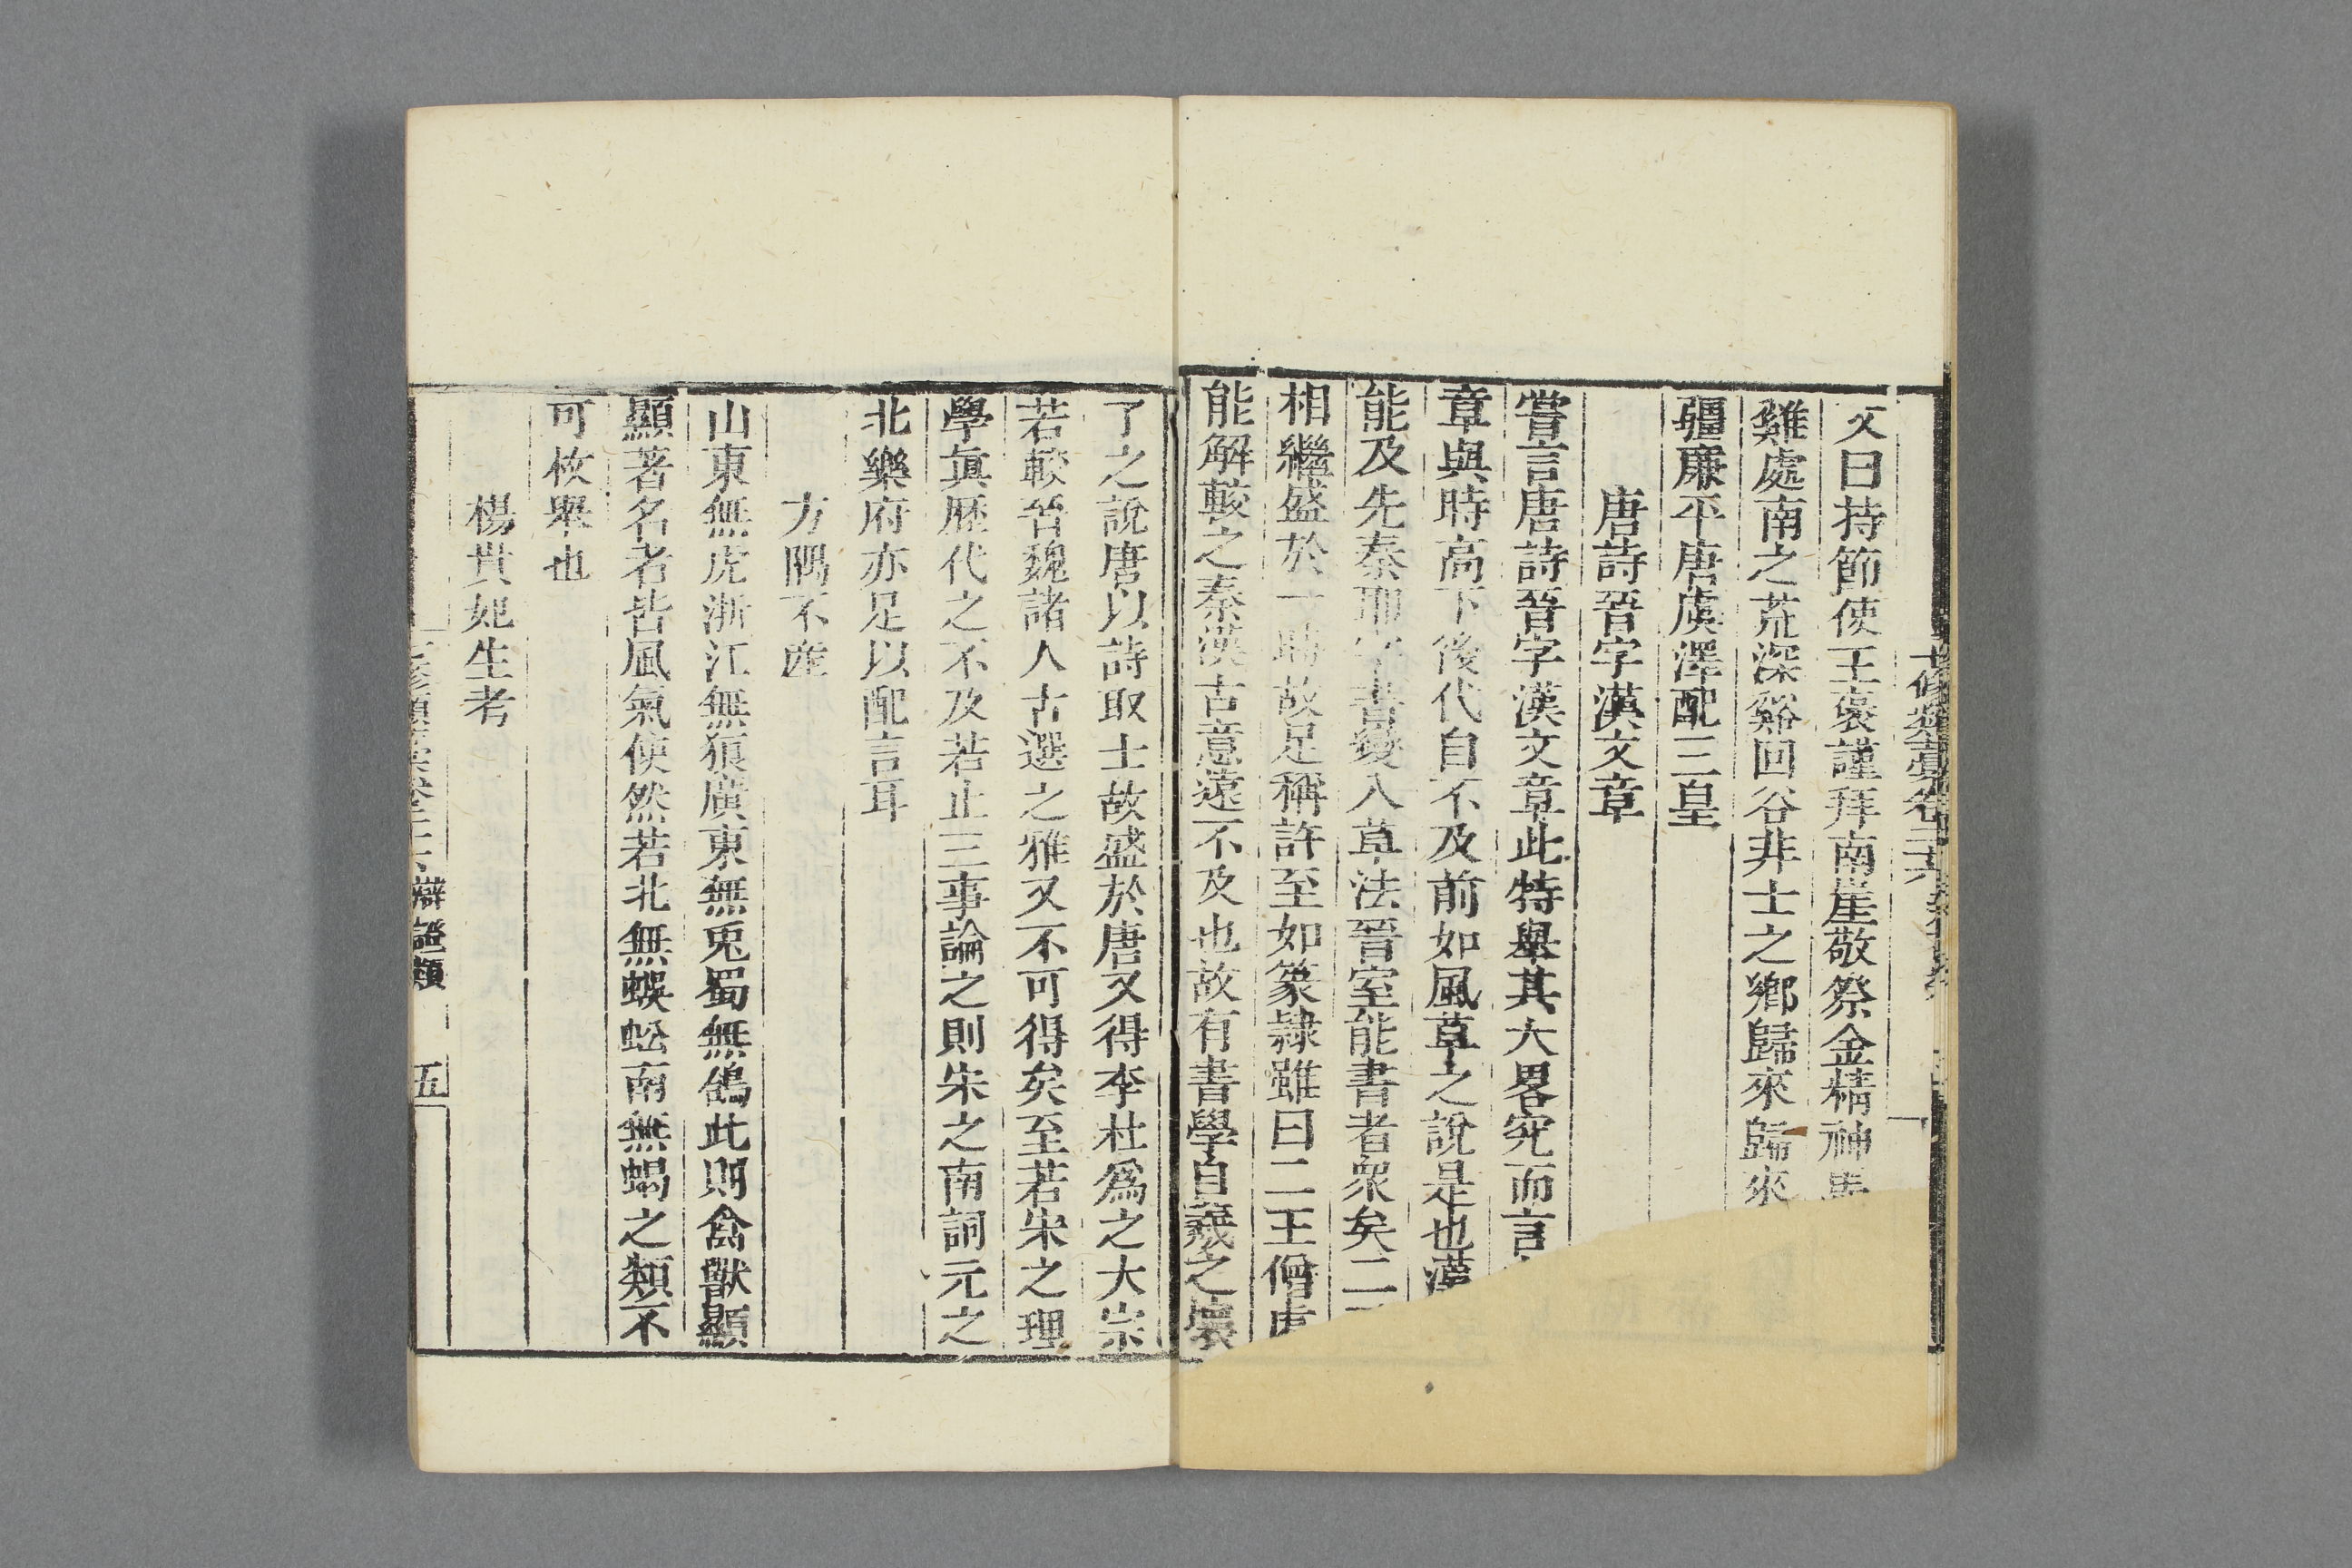 七修類藁卷二十六
文曰持節使王襃謹拜南崖敬祭金精神馬
雞處南之荒深谿回谷非士之鄉歸來歸來
疆廉平唐虞澤配三皇
唐詩晉字漢文章
嘗言唐詩晉字漢文章此特舉其大畧究而言
章與時高下後代自不及前如風草之說是也漢
能及先秦耶字書變入草法晉室能書者衆矣二
相繼盛於一時故足稱許至如篆隸雖曰二王僧虔
能解較之秦漢古意遠不及也故有書學自羲之壞
了之說唐以詩取士故盛於唐又得李杜爲之大宗
若較晉魏諸人古選之雅又不可得矣至若宋之理
學眞歷代之不及若止三事論之則宋之南詞元之
北樂府亦足以配言耳
方隅不產
山東無虎浙江無狼廣東無兎蜀無鴿此則禽獸顯
顯著名者皆風氣使然若北無蜈蚣南無蝎之類不
可枚舉也
楊貴妃生考
辯證類 五